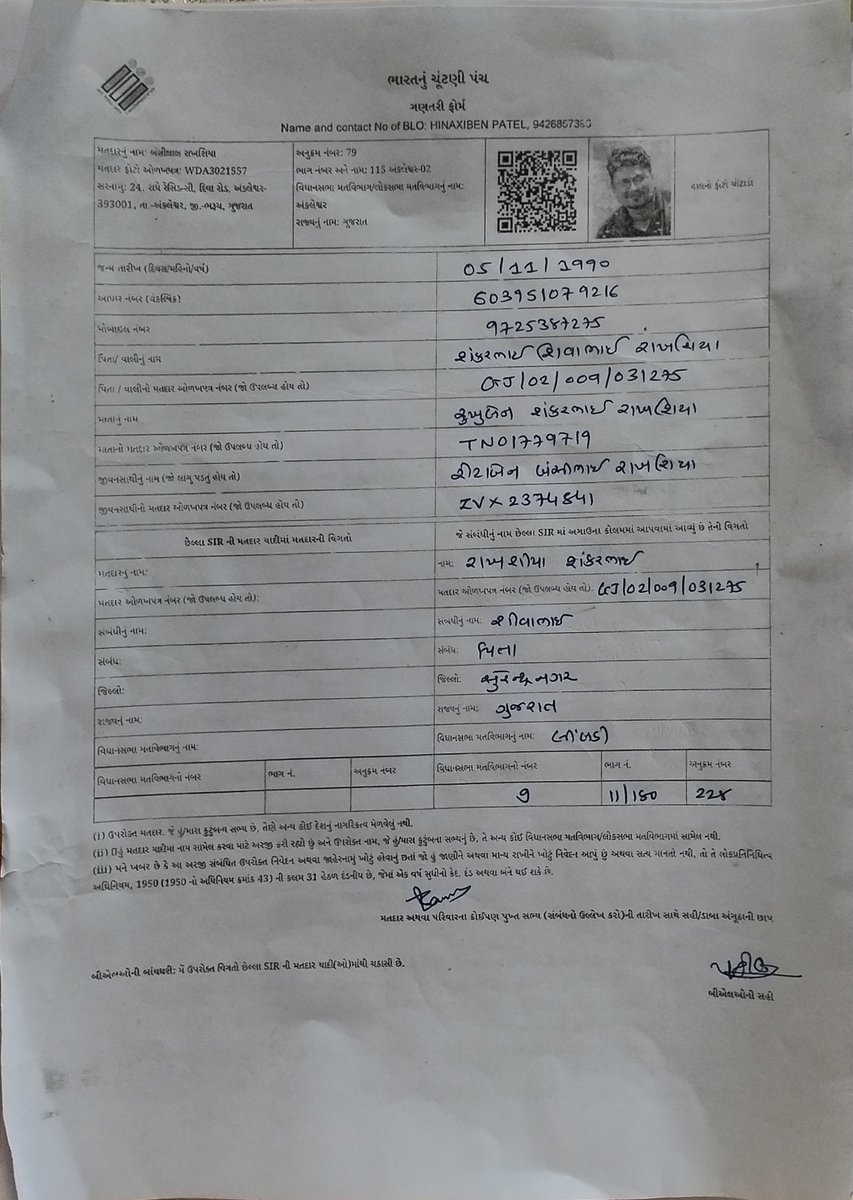 ભારતનું ચૂંટણી પંચ
ગણતરી ફોર્મ
Name and contact No of BLO: HINAXIBEN PATEL, 9426857385
મતદારનું નામ: બંસીલાલ સખસિયા
મતદાર ફોટો ઓળખપત્ર: WDA3021557
સરનામું: 24, રાધે રેસિડન્સી, દિવા રોડ, અંકલેશ્વર-
393001, તા.-અંકલેશ્વર, જી.-ભરૂચ, ગુજરાત
અનુક્રમ નંબર: 79
ભાગ નંબર અને નામ: 115 અંકલેશ્વર-02
વિધાનસભા મતવિભાગ/લોકસભા મતવિભાગનું નામ:
અંકલેશ્વર
રાજ્યનું નામ: ગુજરાત
હાલનો ફોટો ચોંટાડો
જન્મ તારીખ (દિવસ/મહિનો/વર્ષ) 05/11/1990
આધાર નંબર (વૈકલ્પિક) 603951079216
મોબાઇલ નંબર 9725387275
પિતા/ વાલીનું નામ શંકરભાઈ શિવાભાઈ રાખશિયા
પિતા / વાલીનો મતદાર ઓળખપત્ર નંબર (જો ઉપલબ્ધ હોય તો) GJ/02/009/031275
માતાનું નામ શંકરભાઈ રાખશિયા
માતાનો મતદાર ઓળખપત્ર નંબર (જો ઉપલબ્ધ હોય તો) TNO1779719
જીવનસાથીનું નામ (જો લાગુ પડતું હોય તો) બંસીભાઈ રાખશિયા
જીવનસાથીનો મતદાર ઓળખપત્ર નંબર (જો ઉપલબ્ધ હોય તો) IVX2374841
છેલ્લા SIR ની મતદાર યાદીમાં મતદારની વિગતો
જે સંબંધીનું નામ છેલ્લા SIR માં અગાઉના કોલમમાં આપવામાં આવ્યું છે તેની વિગતો
મતદારનું નામ:
નામ: રાખશીયા શંકરભાઈ
મતદાર ઓળખપત્ર નંબર (જો ઉપલબ્ધ હોય તો):
મતદાર ઓળખપત્ર નંબર (જો ઉપલબ્ધ હોય તો): GJ/02/009/031275
સંબંધીનું નામ:
સંબંધીનું નામ: શીવાભાઈ
સંબંધ:
સંબંધ: પિતા
જિલ્લો:
જિલ્લો: સુરેન્દ્રનગર
રાજ્યનું નામ:
રાજ્યનું નામ: ગુજરાત
વિધાનસભા મતવિભાગનું નામ:
વિધાનસભા મતવિભાગનું નામ: લીંબડી
વિધાનસભા મતવિભાગનો નંબર ભાગ નં. અનુક્રમ નંબર
વિધાનસભા મતવિભાગનો નંબર ભાગ નં. અનુક્રમ નંબર
9 11/180 228
(i) ઉપરોક્ત મતદાર, જે હું/મારા કુટુંબના સભ્ય છે, તેણે અન્ય કોઈ દેશનું નાગરિકત્વ મેળવેલું નથી.
(ii) હું મતદાર યાદીમાં નામ સામેલ કરવા માટે અરજી કરી રહ્યો છું અને ઉપરોક્ત નામ, જે હું/મારા કુટુંબના સભ્યનું છે, તે અન્ય કોઈ વિધાનસભા મતવિભાગ/લોકસભા મતવિભાગમાં સામેલ નથી.
(iii) મને ખબર છે કે આ અરજી સંબંધિત ઉપરોક્ત નિવેદન અથવા જાહેરનામું ખોટું હોવાનું છતાં જો હું જાણીને અથવા માન્ય રાખીને ખોટું નિવેદન આપું છું અથવા સત્ય માનતો નથી, તો તે લોકપ્રતિનિધિત્વ
અધિનિયમ, 1950 (1950 નો અધિનિયમ ક્રમાંક 43) ની કલમ 31 હેઠળ દંડનીય છે, જેમાં એક વર્ષ સુધીનો કેદ, દંડ અથવા બંને થઈ શકે છે.
મતદાર અથવા પરિવારના કોઈપણ પુખ્ત સભ્ય (સંબંધનો ઉલ્લેખ કરો)ની તારીખ સાથે સહી/ડાબા અંગૂઠાની છાપ
બીએલઓની બાંયધરી: મેં ઉપરોક્ત વિગતો છેલ્લા SIR ની મતદાર યાદી(ઓ)માંથી ચકાસી છે.
બીએલઓની સહી